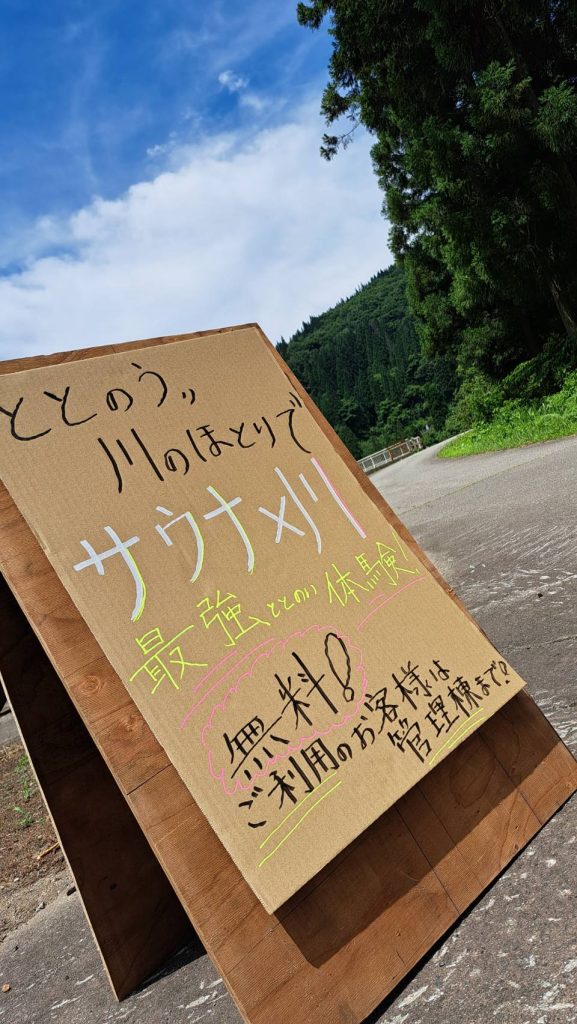 ととのう〃
川のほとりで
サウナ×川
最強ととのい体験!
無料!
ご利用のお客様は
管理棟まで!